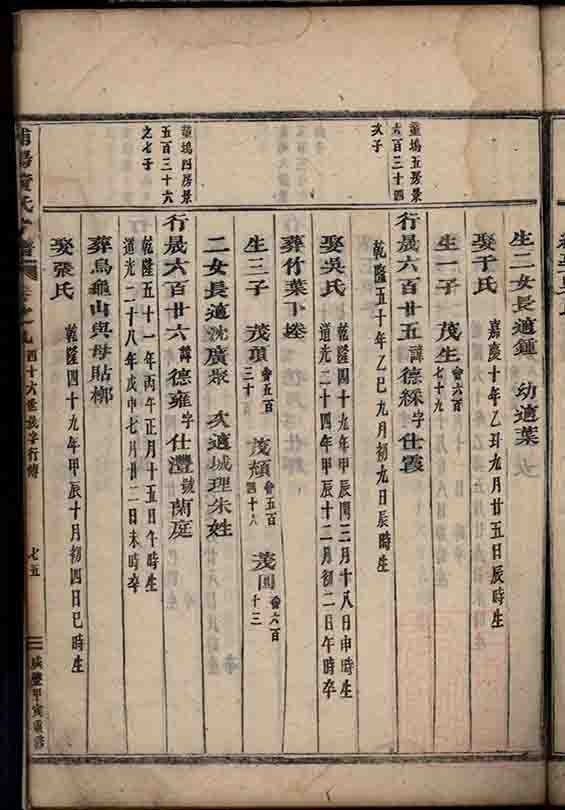 生二女長適鍾 幼適葉
娶于氏 嘉慶十年乙丑九月廿五日辰時生
生一子 茂生會六百七十九
董塢五房景六百三十四次子
行晟六百廿五諱德綵字仕霞
乾隆五十年乙巳九月初九日辰時生
娶吳氏 乾隆四十九年甲辰閏三月十八日申時生
道光二十四年甲辰十二月初二日午時卒
葬竹葉下塍
生三子 茂項會五百三十 茂頫會五百四十六 茂 會六百十三
二女長適沈廣聚 次適城理朱姓
董塢四房景五百三十六之七子
行晟六百廿六諱德雍字仕灃號蘭庭
乾隆五十一年丙午正月十五日午時生
道光二十八年戊申七月廿二日未時卒
葬烏龜山與母貼槨
娶張氏 乾隆四十九年甲辰十月初四日巳時生
浦陽黃氏宗譜 卷之九 四十六世晟字行傳 七五 咸豐甲寅重修